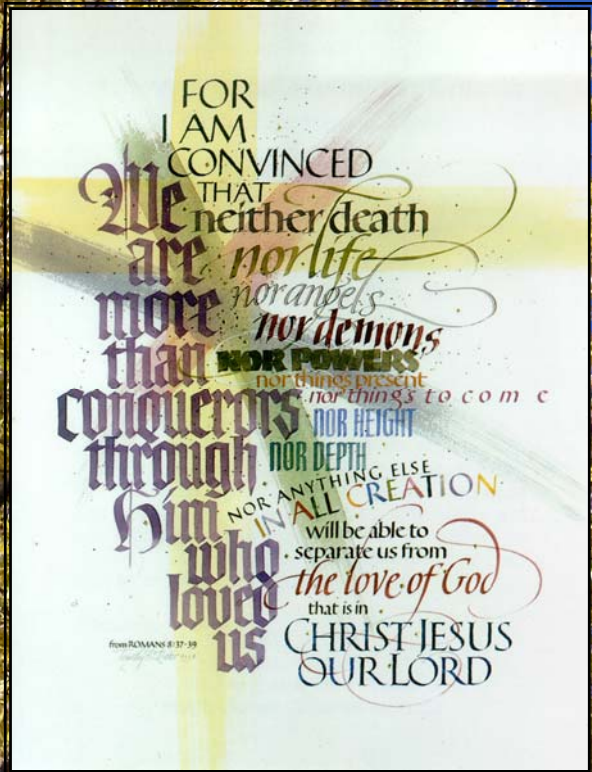 We
are
more
than
conquerors
through
Him
who
loved
us
FOR
I AM
CONVINCED
THAT
neither death
nor life
nor angels
nor demons
NOR POWERS
nor things present
nor things to come
NOR HEIGHT
NOR DEPTH
NOR ANYTHING ELSE
IN ALL CREATION
will be able to
separate us from
the love of God
that is in
CHRIST JESUS
OUR LORD
from ROMANS 8:37-39